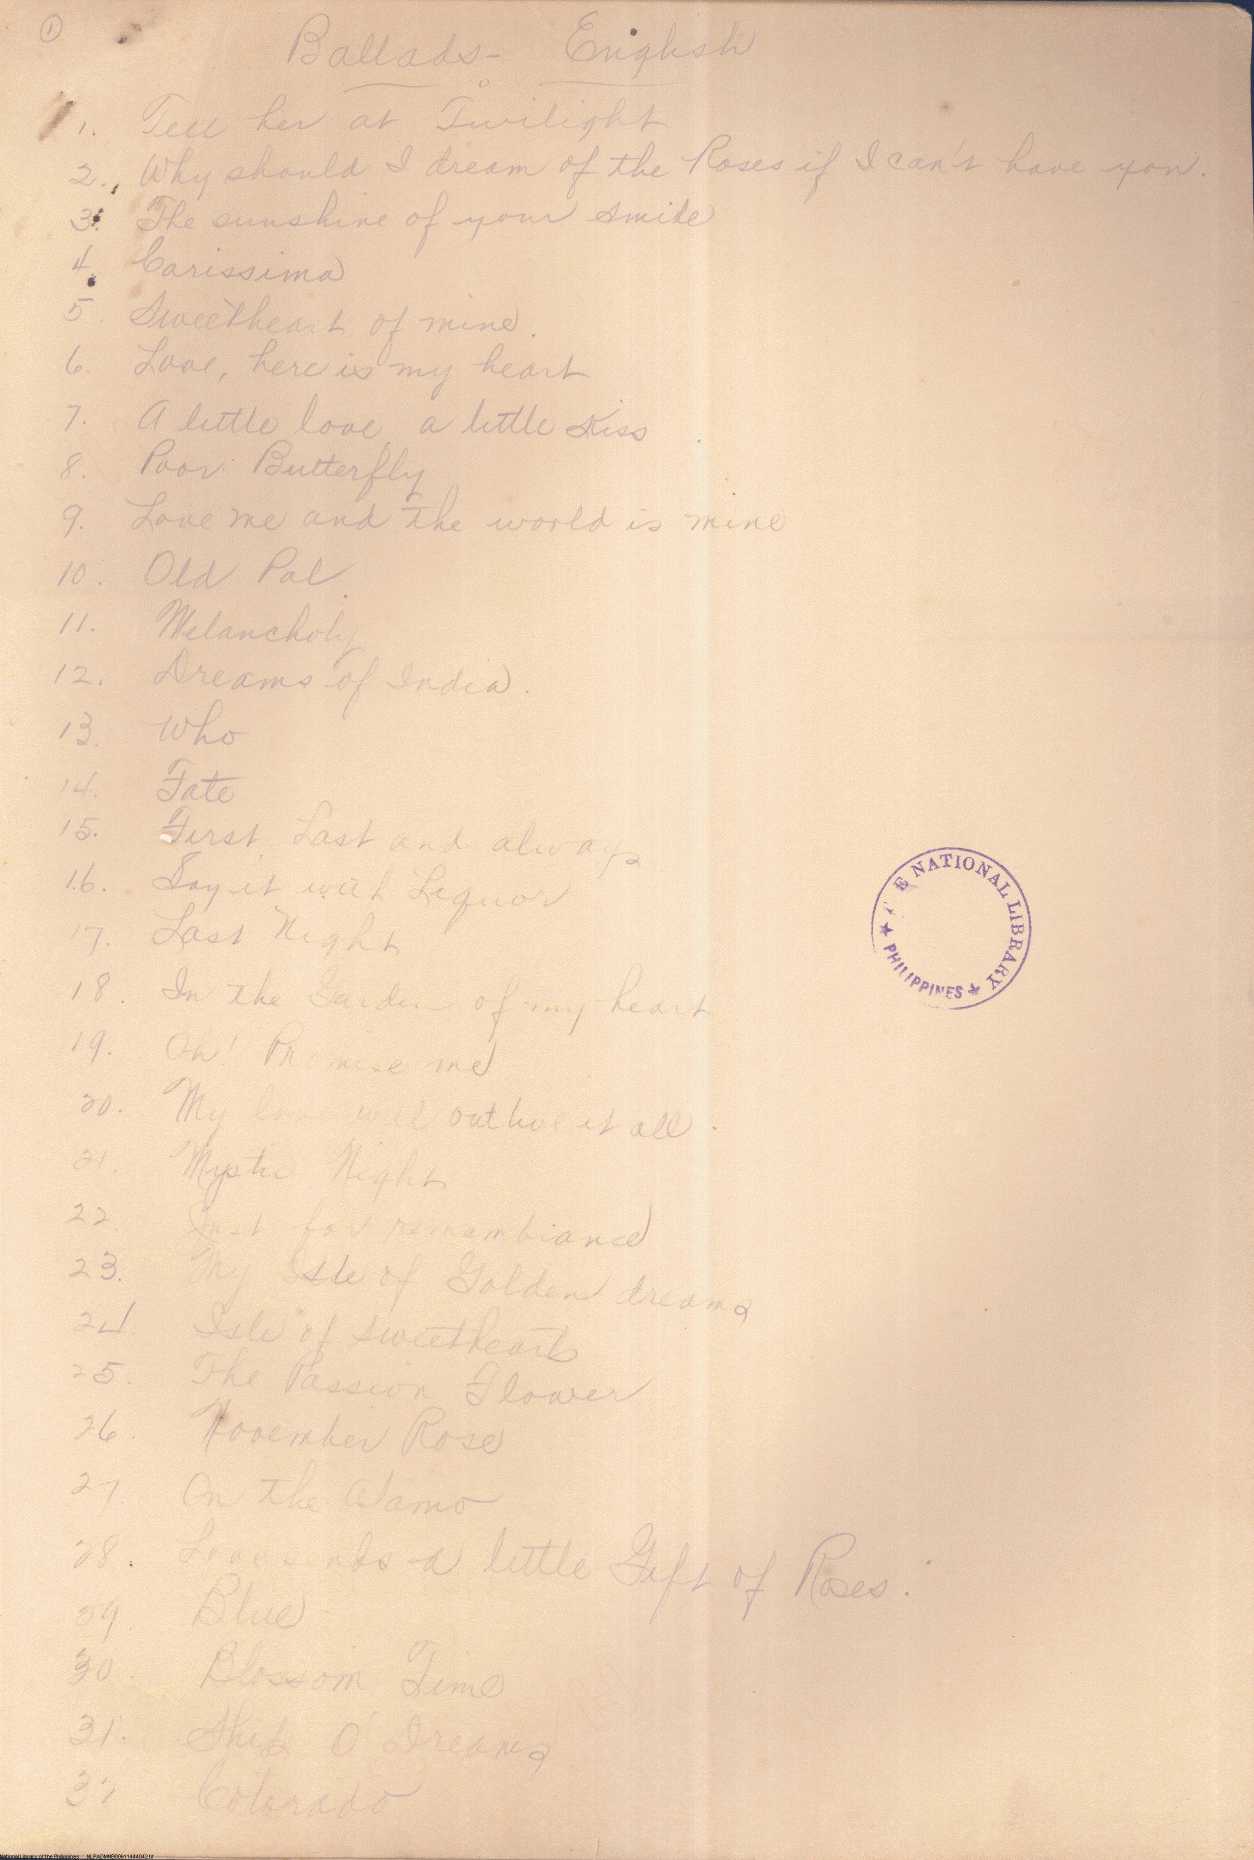 1
Ballads - English
1. Tell her at Twilight
2. Why should I dream of the Roses if I can't have you.
3. The sunshine of your smile
4. Carissima
5. Sweetheart of mine.
6. Love, here is my heart
7. A little love, a little kiss
8. Poor Butterfly
9. Love me and the world is mine
10. Old Pal.
11. Melancholy
12. Dreams of India.
13. Who
14. Fate
15. First, Last and always
16. Say it with Liquor
17. Last Night
18. In the Garden of my heart
19. Oh! Promise me
20. My love will outlive it all.
21. Mystic Night
22. Just for remembrance
23. My Isle of Golden dreams
24. Isle of Sweethearts
25. The Passion Flower
26. November Rose
27. On the Alamo
28. Love sends a little Gift of Roses.
29. Blue
30. Blossom Time
31. Ship O' Dreams
32 Colorado
E NATIONAL LIBRARY
PHILIPPINES
National Library of the Philippines